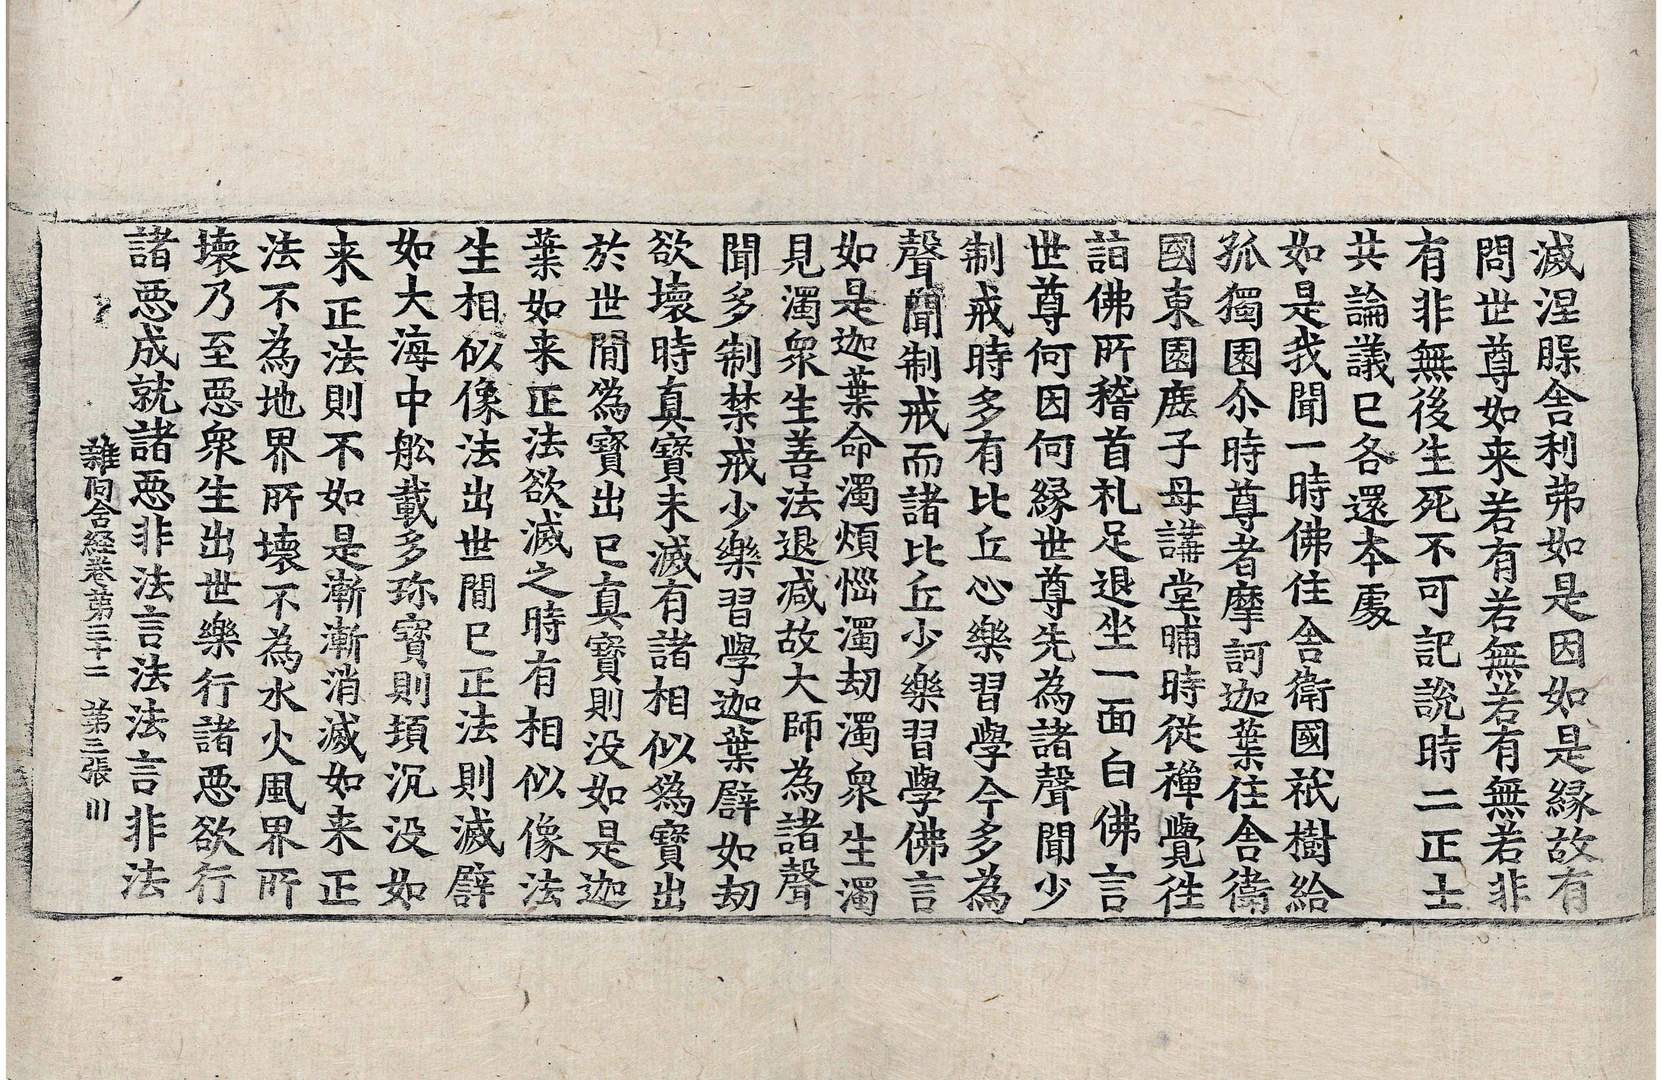 滅涅槃舍利弗如是因如是縁故有
問世尊如来若有若無若有無若非
有非無後生死不可記説時二正士
共論議已各還本處
如是我聞一時佛住舍衛國祇樹給
孤獨園尒時尊者摩訶迦葉住舍衛
國東園鹿子母講堂晡時従禪覺往
詣佛所稽首礼足退坐一面白佛言
世尊何因何縁世尊先為諸聲聞少
制戒時多有比丘心樂習學今多為
聲聞制戒而諸比丘少樂習學佛言
如是迦葉命濁煩惱濁劫濁衆生濁
見濁衆生善法退減故大師為諸聲
聞多制禁戒少樂習學迦葉譬如劫
欲壞時真寶未滅有諸相似偽寶出
於世間偽寶出已真寶則没如是迦
葉如来正法欲滅之時有相似像法
生相似像法出世間已正法則滅譬
如大海中舩載多珎寶則頓沉没如
来正法則不如是漸漸消滅如来正
法不為地界所壞不為水火風界所
壞乃至惡衆生出世樂行諸惡欲行
諸惡成就諸惡非法言法法言非法
雜阿含経卷第三十二　第三張